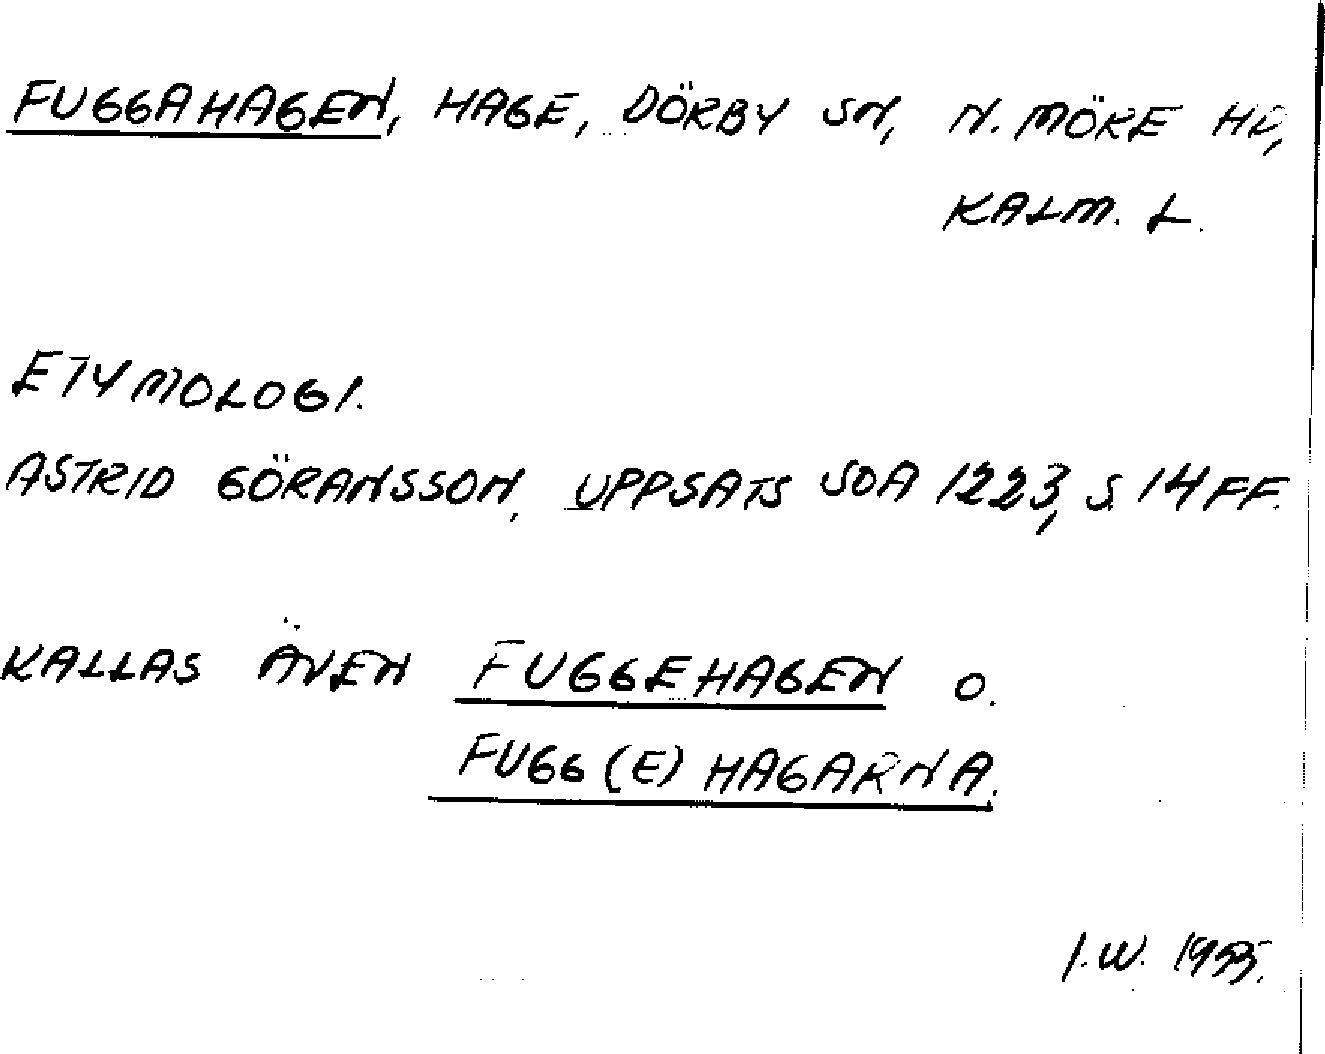 FUGGAHAGEN, HAGE, DÖRBY SN, N. MÖRE HD,
KALM. L.
ETYMOLOGI.
ASTRID GÖRANSSON, UPPSATS SOA 1223, S. 14 FF.
KALLAS ÄVEN FUGGEHAGEN O.
FUGG(E)HAGARNA.
I.W. 1955.